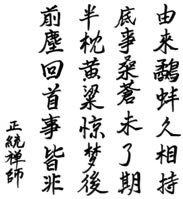 由来鷸蚌久相持
底事桑蒼未了期
半枕黄粱惊梦後
前塵回首事皆非
正統禅師